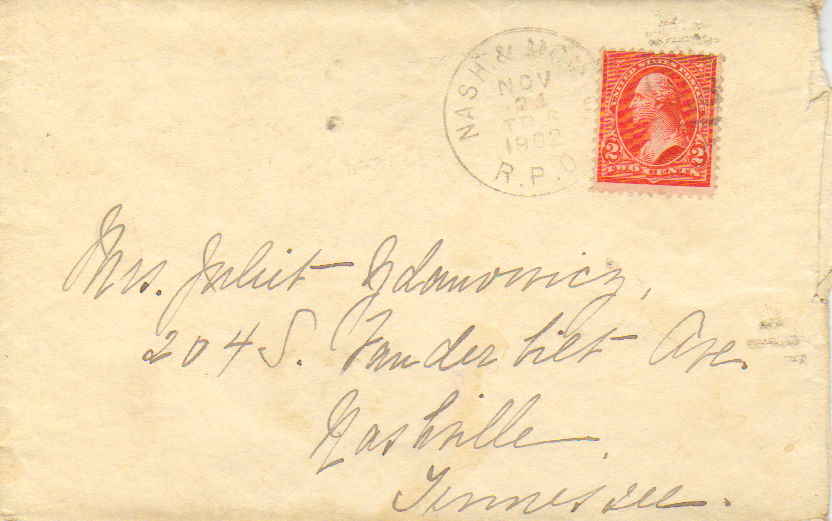 NASH. & MON
NOV
24
1902
R.P.O
UNITED STATES POSTAGE
2 2
TWO CENTS
Mrs. Juliet Zdanowicz,
204 S. Vanderbilt Ave.
Nashville
Tennessee.